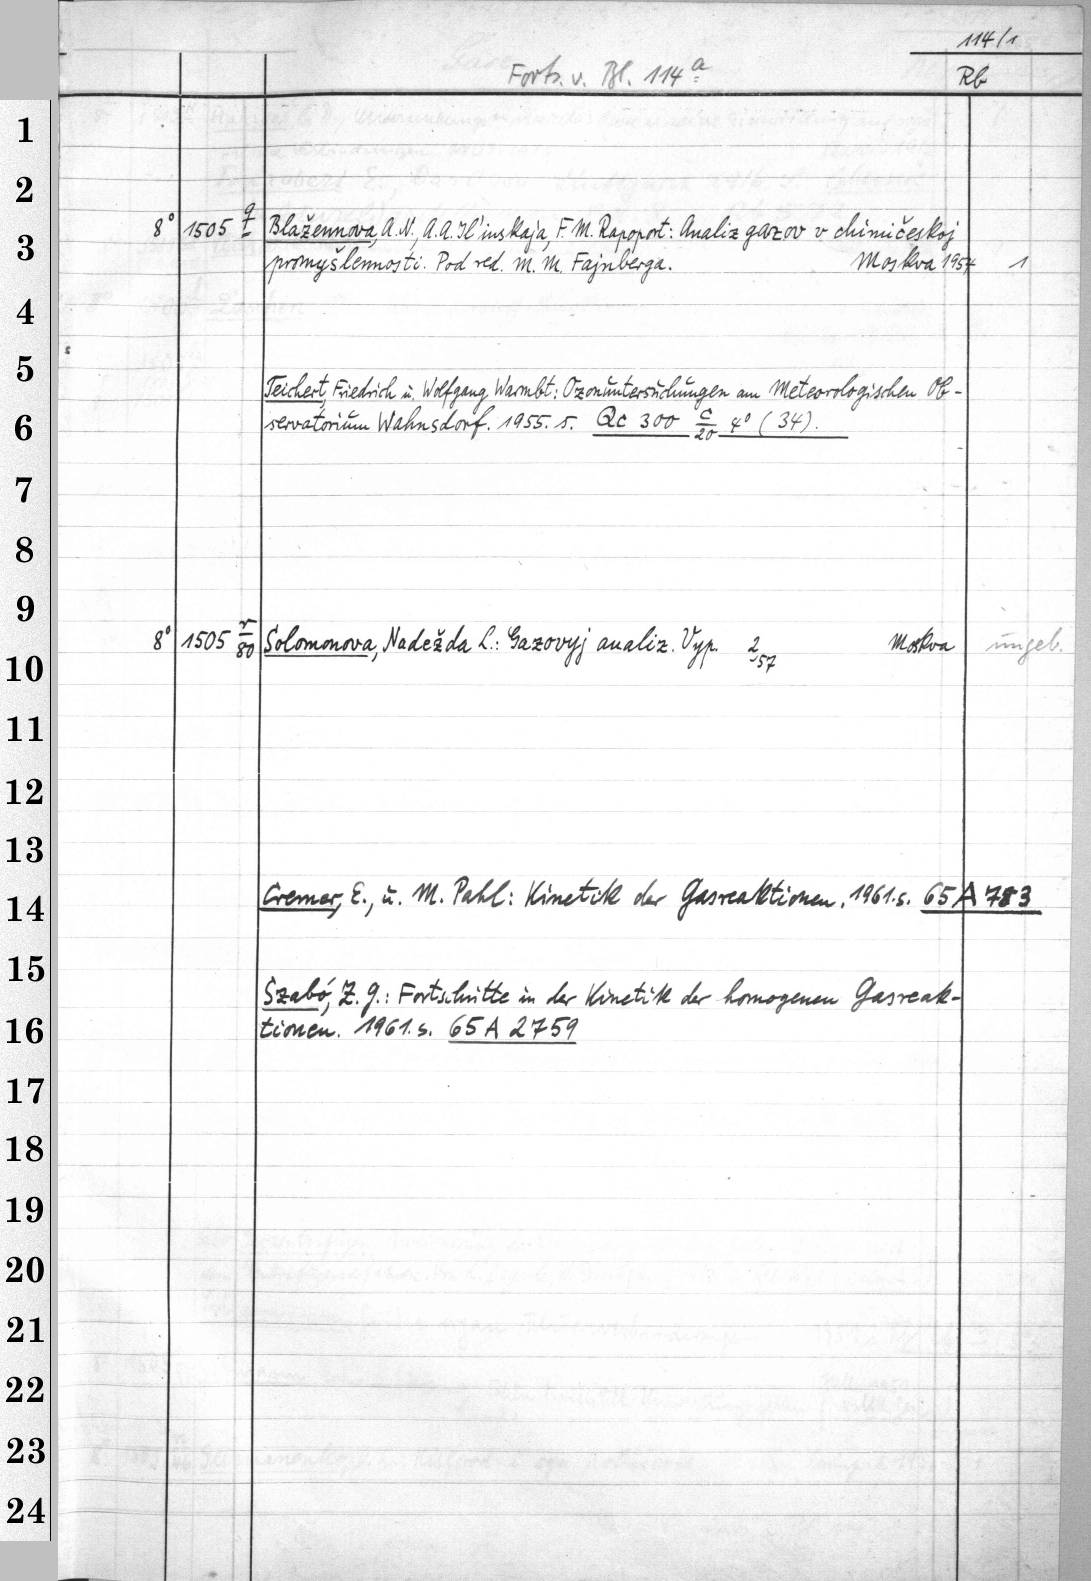 114/1
Forts. v. Bl. 114 a Rb
1
2
8° 1505 q Blažennova, A. N., A. A. Il'inskaja, F. M. Rapoport: Analiz gazov v chimičeskoj
3
promyšlennosti. Pod red. M. M. Fajnberga. Moskva 1954 1
4
5
Teichert, Friedrich u. Wolfgang Warmbt: Ozonuntersuchungen am Meteorologischen Ob-
6 servatorium Wahnsdorf. 1955. s. Qc 300 c/20 4° (34).
7
8
9
8° 1505 r/80 Solomonova, Nadežda L.: Gazovyj analiz. Vyp. 2 57 Moskva ungeb.
10
11
12
13
14 Cremer, E., u. M. Pahl: Kinetik der Gasreaktionen. 1961. s. 65 A 783
15
Szabó, Z. G.: Fortschritte in der Kinetik der homogenen Gasreak-
16 tionen. 1961. s. 65 A 2759
17
18
19
20
21
22
23
24